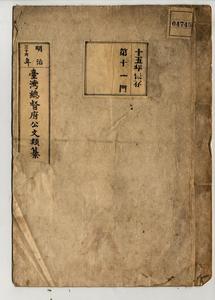 明治
三十四年
臺灣總督府公文類纂
十五年保存
第十一門
04745